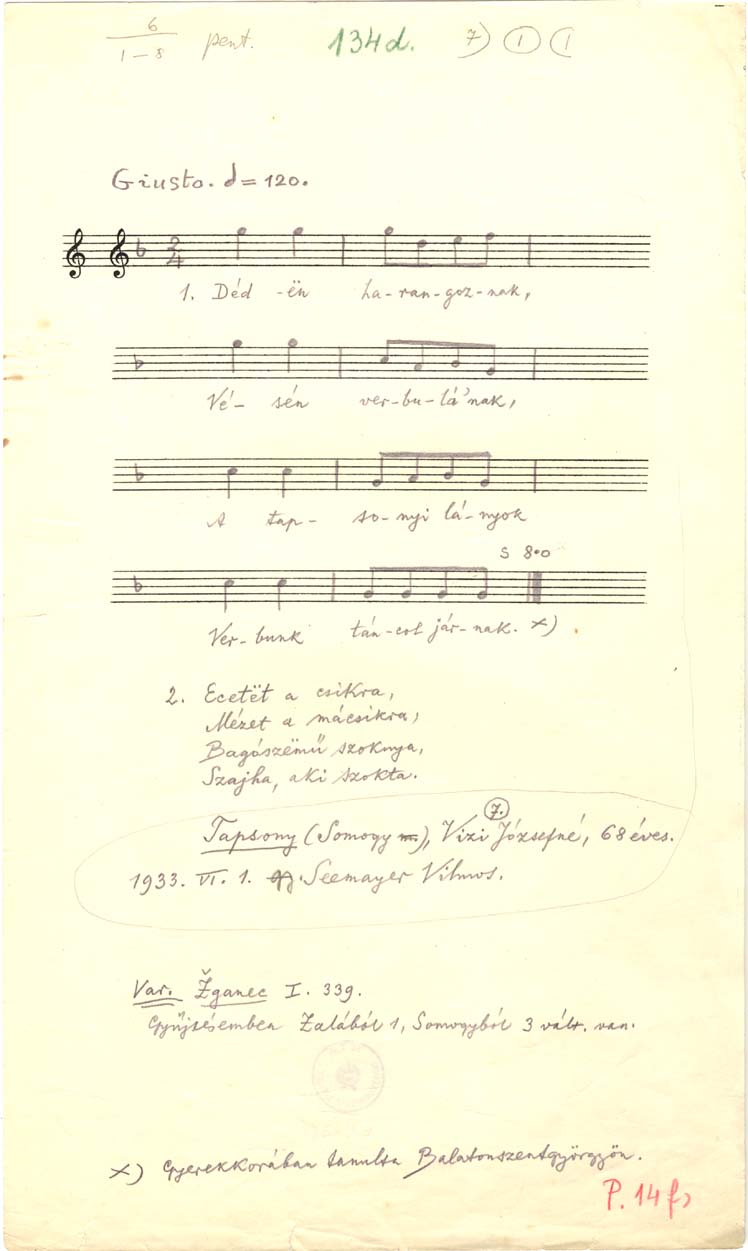 6
1–8 pent. 134d. 7) 1 1
Giusto. d = 120.
2
4
1. Déd -ën ha-ran-goz-nak,
Vé- sén ver-bu-lá'nak,
A tap- so-nyi lá-nyok
S 8·0
Ver-bunk tán-col jár-nak. x)
2. Ecetët a csikra,
Mézet a mácsikra,
Bagószëmű szoknya,
Szajha, aki szokta.
7.
Tapsony (Somogy m.), Vizi Józsefné, 68 éves.
1933. VI. 1. Seemayer Vilmos.
Var. Žganec I. 339.
Gyűjtésemben Zalából 1, Somogyból 3 vált. van.
x) Gyerekkorában tanulta Balatonszentgyörgyön.
P. 14 f)